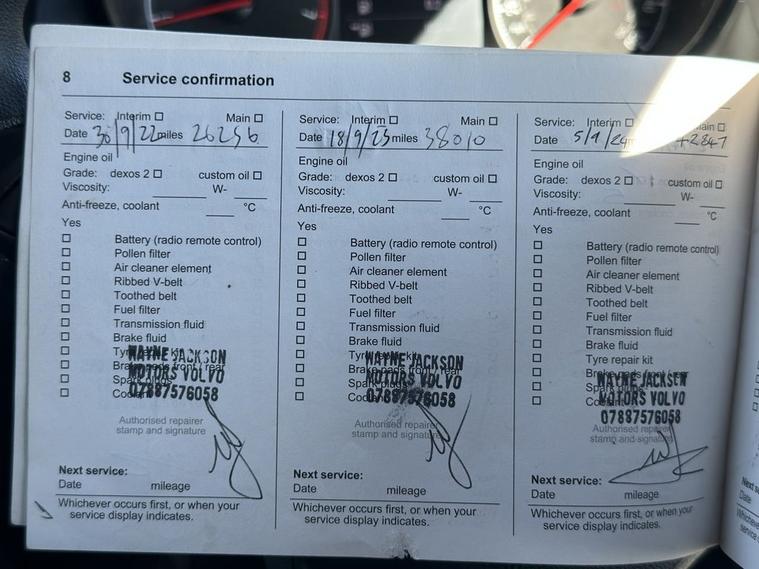 8 Service confirmation
Service: Interim ☐ Main ☐
Date 30/9/22 miles 26256
Engine oil
Grade: dexos 2 ☐ custom oil ☐
Viscosity: W-
Anti-freeze, coolant °C
Yes
☐ Battery (radio remote control)
☐ Pollen filter
☐ Air cleaner element
☐ Ribbed V-belt
☐ Toothed belt
☐ Fuel filter
☐ Transmission fluid
☐ Brake fluid
☐ Tyre repair kit
☐ Brake pads front / rear
☐ Spark plugs
☐ Coolant
WAYNE JACKSON
MOTORS VOLVO
07887576058
Authorised repairer
stamp and signature
Next service:
Date mileage
Whichever occurs first, or when your
service display indicates.
Service: Interim ☐ Main ☐
Date 18/9/23 miles 38010
Engine oil
Grade: dexos 2 ☐ custom oil ☐
Viscosity: W-
Anti-freeze, coolant °C
Yes
☐ Battery (radio remote control)
☐ Pollen filter
☐ Air cleaner element
☐ Ribbed V-belt
☐ Toothed belt
☐ Fuel filter
☐ Transmission fluid
☐ Brake fluid
☐ Tyre repair kit
☐ Brake pads front / rear
☐ Spark plugs
☐ Coolant
WAYNE JACKSON
MOTORS VOLVO
07887576058
Authorised repairer
stamp and signature
Next service:
Date mileage
Whichever occurs first, or when your
service display indicates.
Service: Interim ☐ Main ☐
Date 5/9/24 42847
Engine oil
Grade: dexos 2 ☐ custom oil ☐
Viscosity: W-
Anti-freeze, coolant °C
Yes
☐ Battery (radio remote control)
☐ Pollen filter
☐ Air cleaner element
☐ Ribbed V-belt
☐ Toothed belt
☐ Fuel filter
☐ Transmission fluid
☐ Brake fluid
☐ Tyre repair kit
☐ Brake pads front / rear
☐ Spark plugs
☐ Coolant
WAYNE JACKSON
MOTORS VOLVO
07887576058
Authorised repairer
stamp and signature
Next service:
Date mileage
Whichever occurs first, or when your
service display indicates.